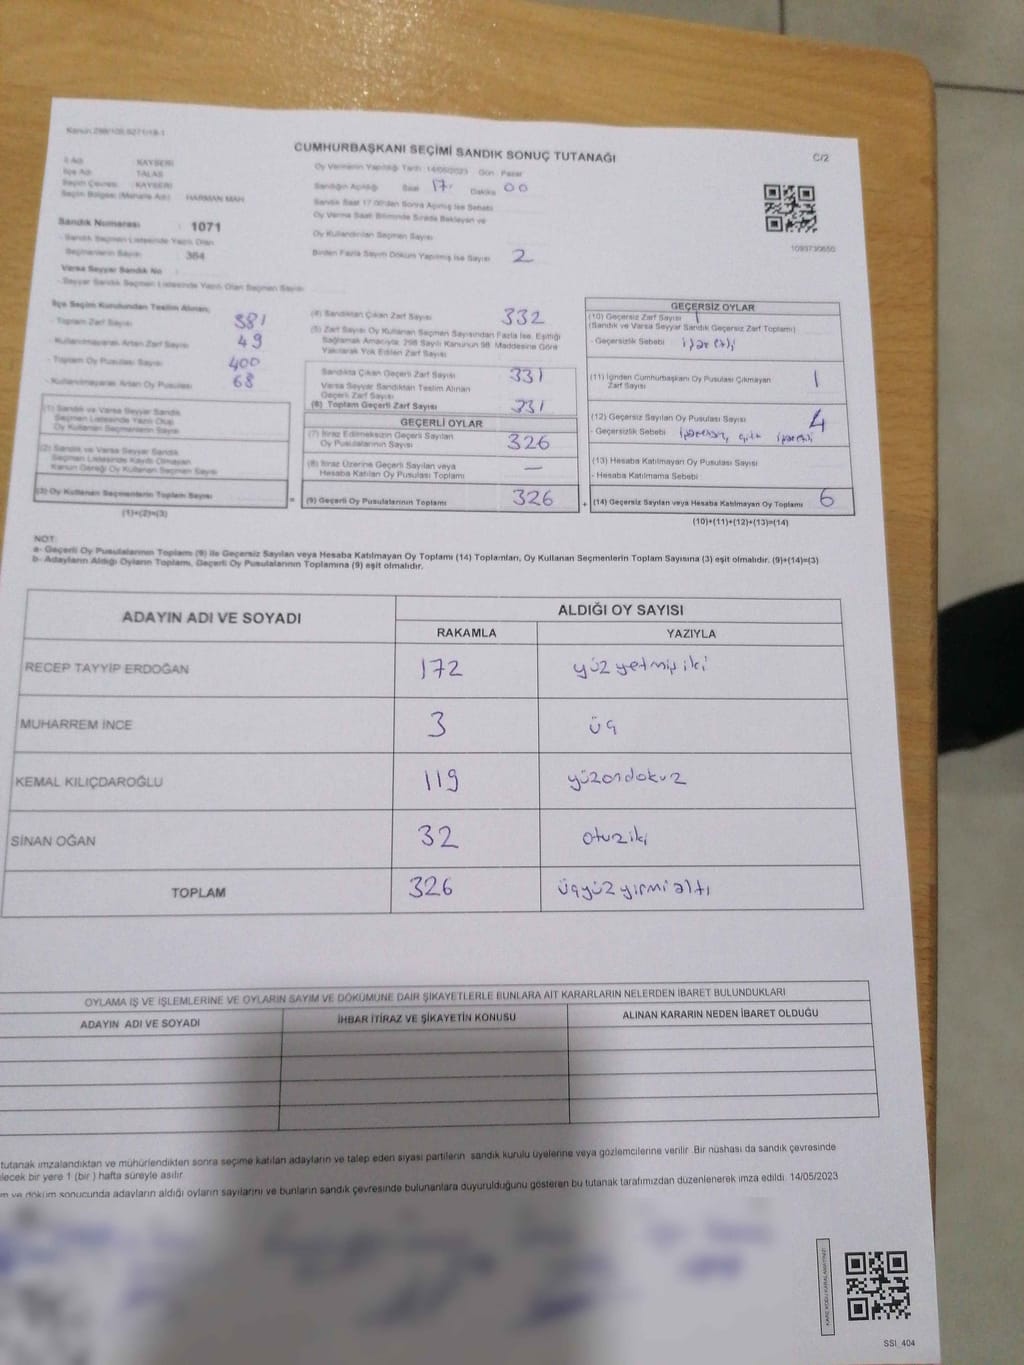 Kanun:298/105.6271/19-1
CUMHURBAŞKANI SEÇİMİ SANDIK SONUÇ TUTANAĞI
C/2
İl Adı : KAYSERİ
İlçe Adı : TALAS
Seçim Çevresi : KAYSERİ
Seçim Bölgesi (Mahalle Adı) : HARMAN MAH
Oy Vermenin Yapıldığı Tarih :14/05/2023 Gün : Pazar
Sandığın Açıldığı Saat 17 Dakika 00
Sandık Saat 17:00'den Sonra Açılmış İse Sebebi
Oy Verme Saati Bitiminde Sırada Bekleyen ve
Oy Kullandırılan Seçmen Sayısı
Birden Fazla Sayım Döküm Yapılmış İse Sayısı 2
1093730650
Sandık Numarası : 1071
- Sandık Seçmen Listesinde Yazılı Olan
Seçmenlerin Sayısı : 364
Varsa Seyyar Sandık No :
- Seyyar Sandık Seçmen Listesinde Yazılı Olan Seçmen Sayısı :
İlçe Seçim Kurulundan Teslim Alınan;
- Toplam Zarf Sayısı 381
- Kullanılmayarak Artan Zarf Sayısı 49
- Toplam Oy Pusulası Sayısı 400
- Kullanılmayarak Artan Oy Pusulası 68
(1) Sandık ve Varsa Seyyar Sandık
Seçmen Listesinde Yazılı Olup
Oy Kullanan Seçmenlerin Sayısı
(2) Sandık ve Varsa Seyyar Sandık
Seçmen Listesinde Kayıtlı Olmayan
Kanun Gereği Oy Kullanan Seçmen Sayısı
(3) Oy Kullanan Seçmenlerin Toplam Sayısı
(1)+(2)=(3)
=
(4) Sandıktan Çıkan Zarf Sayısı 332
(5) Zarf Sayısı Oy Kullanan Seçmen Sayısından Fazla İse, Eşitliği
Sağlamak Amacıyla, 298 Sayılı Kanunun 98. Maddesine Göre
Yakılarak Yok Edilen Zarf Sayısı
Sandıkta Çıkan Geçerli Zarf Sayısı 331
Varsa Seyyar Sandıktan Teslim Alınan
Geçerli Zarf Sayısı
(6) Toplam Geçerli Zarf Sayısı 331
GEÇERLİ OYLAR
(7) İtiraz Edilmeksizin Geçerli Sayılan
Oy Pusulalarının Sayısı 326
(8) İtiraz Üzerine Geçerli Sayılan veya
Hesaba Katılan Oy Pusulası Toplamı —
(9) Geçerli Oy Pusulalarının Toplamı 326
+
GEÇERSİZ OYLAR
(10) Geçersiz Zarf Sayısı 1
(Sandık ve Varsa Seyyar Sandık Geçersiz Zarf Toplamı)
- Geçersizlik Sebebi işaretli
(11) İçinden Cumhurbaşkanı Oy Pusulası Çıkmayan
Zarf Sayısı 1
(12) Geçersiz Sayılan Oy Pusulası Sayısı 4
- Geçersizlik Sebebi
(13) Hesaba Katılmayan Oy Pusulası Sayısı
- Hesaba Katılmama Sebebi
(14) Geçersiz Sayılan veya Hesaba Katılmayan Oy Toplamı 6
(10)+(11)+(12)+(13)=(14)
NOT:
a- Geçerli Oy Pusulalarının Toplamı (9) ile Geçersiz Sayılan veya Hesaba Katılmayan Oy Toplamı (14) Toplamları, Oy Kullanan Seçmenlerin Toplam Sayısına (3) eşit olmalıdır. (9)+(14)=(3)
b- Adayların Aldığı Oyların Toplamı, Geçerli Oy Pusulalarının Toplamına (9) eşit olmalıdır.
ADAYIN ADI VE SOYADI
ALDIĞI OY SAYISI
RAKAMLA YAZIYLA
RECEP TAYYİP ERDOĞAN 172 yüzyetmişiki
MUHARREM İNCE 3 üç
KEMAL KILIÇDAROĞLU 119 yüzondokuz
SİNAN OĞAN 32 otuziki
TOPLAM 326 üçyüzyirmialtı
OYLAMA İŞ VE İŞLEMLERİNE VE OYLARIN SAYIM VE DÖKÜMÜNE DAİR ŞİKAYETLERLE BUNLARA AİT KARARLARIN NELERDEN İBARET BULUNDUKLARI
ADAYIN ADI VE SOYADI İHBAR İTİRAZ VE ŞİKAYETİN KONUSU ALINAN KARARIN NEDEN İBARET OLDUĞU
tutanak imzalandıktan ve mühürlendikten sonra seçime katılan adayların ve talep eden siyasi partilerin sandık kurulu üyelerine veya gözlemcilerine verilir .Bir nüshası da sandık çevresinde
lecek bir yere 1 (bir ) hafta süreyle asılır.
m ve döküm sonucunda adayların aldığı oyların sayılarını ve bunların sandık çevresinde bulunanlara duyurulduğunu gösteren bu tutanak tarafımızdan düzenlenerek imza edildi. 14/05/2023
SSI_404